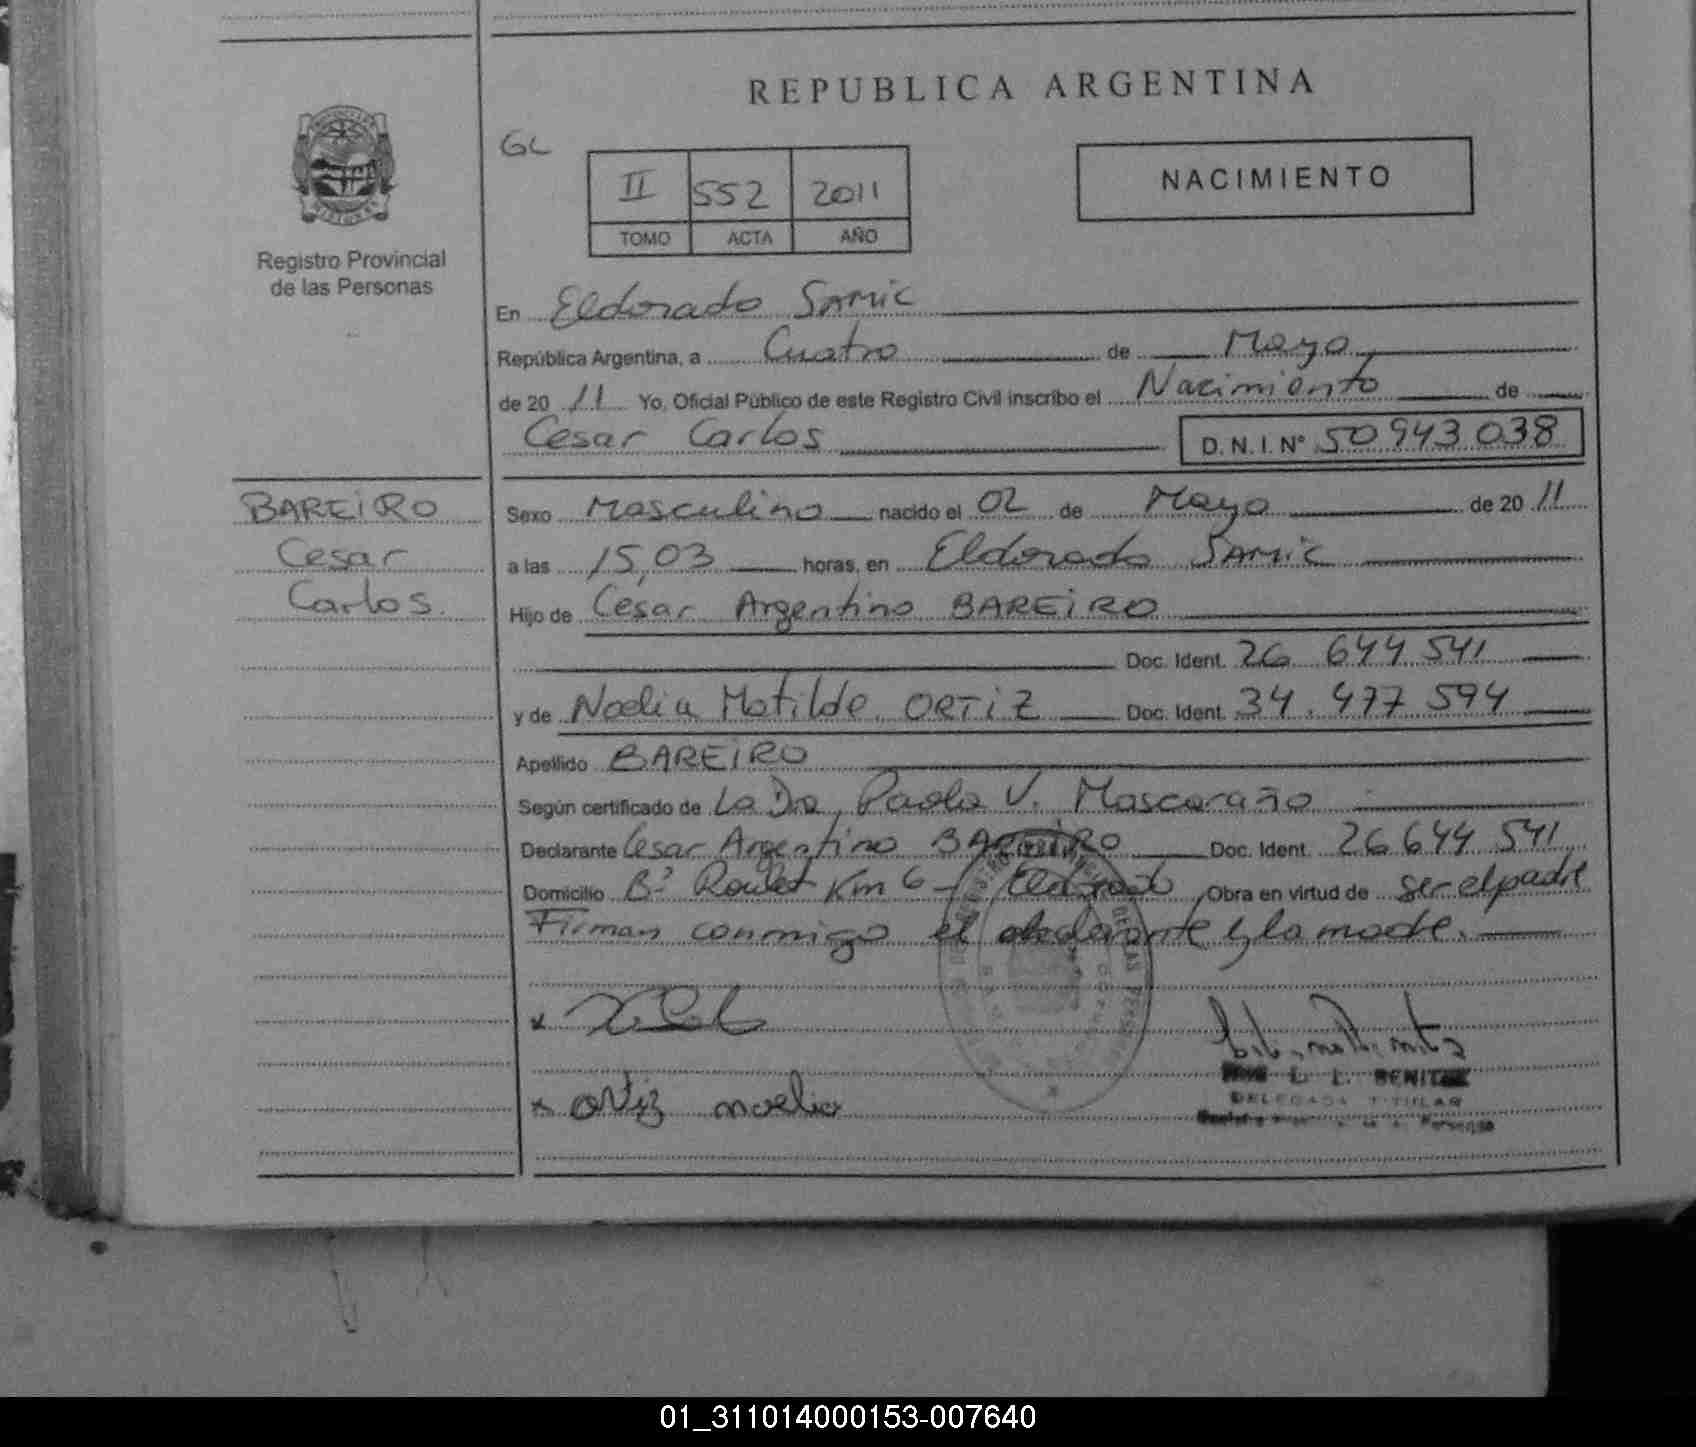 REPUBLICA ARGENTINA
GL
II 552 2011
TOMO ACTA AÑO
NACIMIENTO
Registro Provincial
de las Personas
En Eldorado SAMIC
República Argentina, a Cuatro de Mayo
de 20 11 Yo, Oficial Público de este Registro Civil inscribo el Nacimiento de
Cesar Carlos D.N.I. Nº 50 943 038
BAREIRO
Cesar
Carlos.
Sexo Masculino nacido el 02 de Mayo de 20 11
a las 15,03 horas, en Eldorado SAMIC
Hijo de Cesar Argentino BAREIRO
Doc. Ident. 26 644 541
y de Noelia Matilde ORTIZ Doc. Ident. 34.477 594
Apellido BAREIRO
Según certificado de La Dra, Paola V. Mascaraño
Declarante Cesar Argentino BAREIRO Doc. Ident. 26 644 541
Domicilio Bº Roulet Km 6 - Eldorado, Obra en virtud de ser el padre
Firman conmigo el declarante y la madre.
x
x ortiz noelia
L. L. BENITEZ
DELEGADA TITULAR
01_311014000153-007640